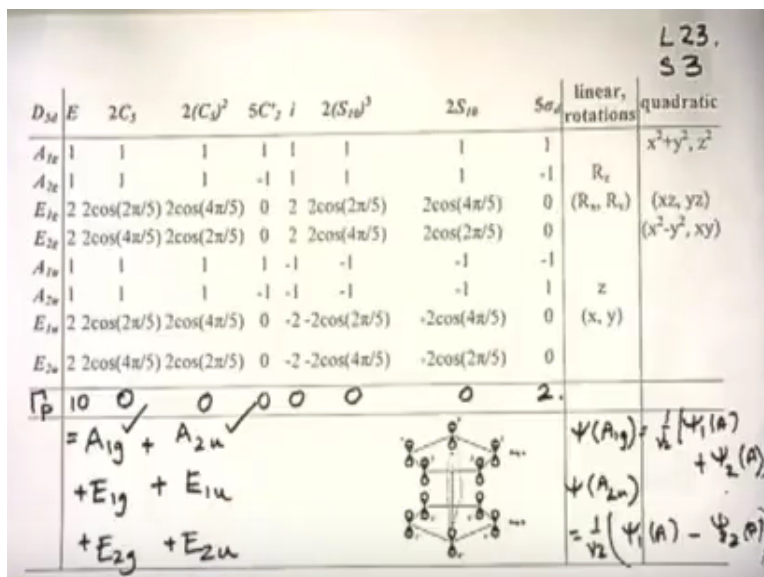 L23.
S3
D5d E 2C5 2(C5)² 5C'2 i 2(S10)³ 2S10 5σd linear, rotations quadratic
A1g 1 1 1 1 1 1 1 1 x²+y², z²
A2g 1 1 1 -1 1 1 1 -1 Rz
E1g 2 2cos(2π/5) 2cos(4π/5) 0 2 2cos(2π/5) 2cos(4π/5) 0 (Rx, Ry) (xz, yz)
E2g 2 2cos(4π/5) 2cos(2π/5) 0 2 2cos(4π/5) 2cos(2π/5) 0 (x²-y², xy)
A1u 1 1 1 1 -1 -1 -1 -1
A2u 1 1 1 -1 -1 -1 -1 1 z
E1u 2 2cos(2π/5) 2cos(4π/5) 0 -2 -2cos(2π/5) -2cos(4π/5) 0 (x, y)
E2u 2 2cos(4π/5) 2cos(2π/5) 0 -2 -2cos(4π/5) -2cos(2π/5) 0
Γp 10 0 0 0 0 0 0 2.
= A1g + A2u
+ E1g + E1u
+ E2g + E2u
ψ(A1g) = 1/√2 [ψ1(A)
+ ψ2(A)
ψ(A2u)
= 1/√2 (ψ1(A) - ψ2(A)